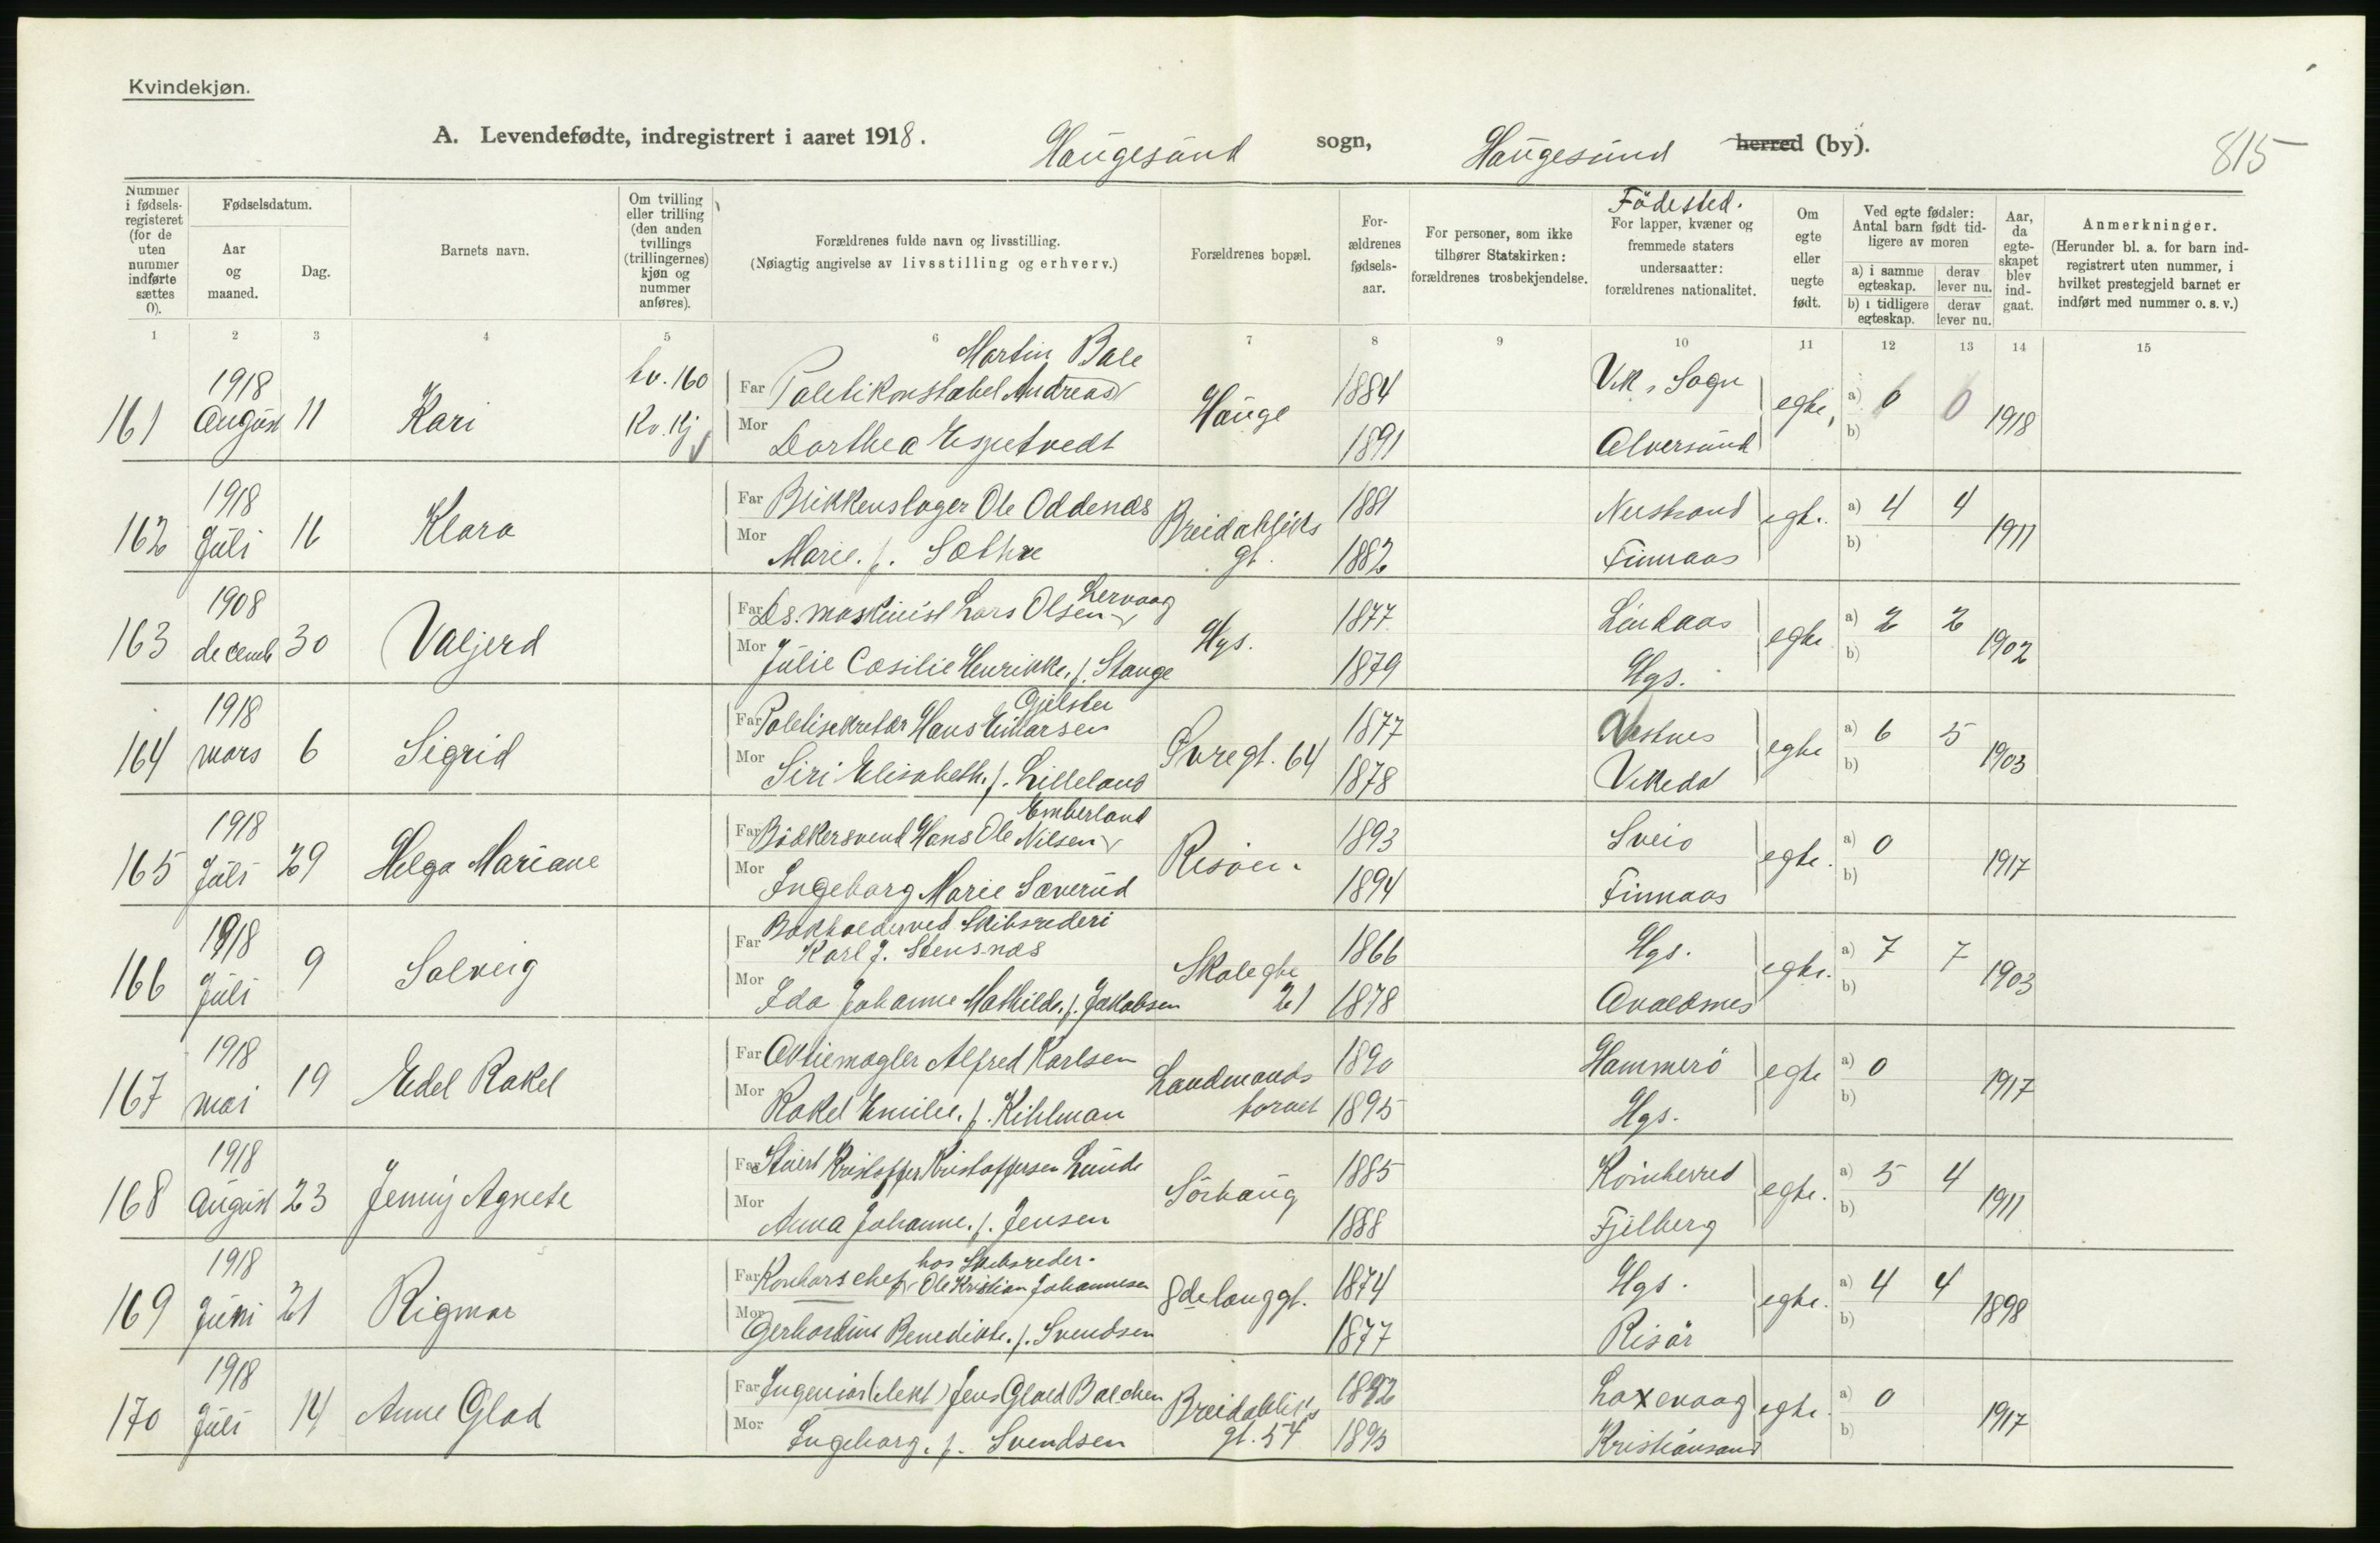 Kvindekjøn.
A. Levendefødte, indregistrert i aaret 1918. Haugesund sogn, Haugesund herred (by).
815
Nummer i fødselsregisteret (for de uten nummer indførte sættes 0).
Fødselsdatum.
Aar og maaned.
Dag.
Barnets navn.
Om tvilling eller trilling (den anden tvillings (trillingernes) kjøn og nummer anføres).
Forældrenes fulde navn og livsstilling.
(Nøiagtig angivelse av livsstilling og erhverv.)
Forældrenes bopæl.
Forældrenes fødselsaar.
For personer, som ikke tilhører Statskirken: forældrenes trosbekjendelse.
Födested.
For lapper, kvæner og fremmede staters undersaatter: forældrenes nationalitet.
Om egte eller uegte født.
Ved egte fødsler: Antal barn født tidligere av moren
a) i samme egteskap. derav lever nu.
b) i tidligere egteskap. derav lever nu.
Aar, da egteskapet blev indgaat.
Anmerkninger.
(Herunder bl. a. for barn indregistrert uten nummer, i hvilket prestegjeld barnet er indført med nummer o. s. v.)
1 2 3 4 5 6 7 8 9 10 11 12 13 14 15
161 1918 August 11 Kari tv. 160 Kv. Kj
Far Politikonstabel Andreas Martin Bale
Mor Dorthea Espetvedt
Hauge 1884 1891 Vik, Sogn Alversund egte, a) 0 0 b) 1918
162 1918 Juli 16 Klara
Far Blikkenslager Ole Oddenes
Mor Marie. f. Sæthre
Breidabliks gt. 1881 1882 Nerstrand Finnaas egt. a) 4 4 b) 1911
163 1908 decemb 30 Valjerd
Far Ds. maskinist Lars Olsen Lervaag
Mor Julie Cæsilie Henrikke. f. Stange
Hgs. 1877 1879 Lindaas Hgs. egte a) 2 2 b) 1902
164 1918 mars 6 Sigrid
Far Politisekretær Hans Einarsen Gjelsten
Mor Siri Elisabeth. f. Lilleland
Svregt. 64 1877 1878 Vestnes Vikedal egte a) 6 5 b) 1903
165 1918 Juli 29 Helga Mariane
Far Bödkersvend Hans Ole Nilsen Emberland
Mor Ingeborg Marie Sæverud
Risöen. 1893 1894 Sveio Finnaas egte. a) 0 b) 1917
166 1918 Juli 9 Solveig
Far Bokholder ved Skibsrederi Karl J. Stensnæs
Mor Ida Johanne Mathilde. f. Jakobsen
Skolegte 21 1866 1878 Hgs. Avaldsnes egte. a) 7 7 b) 1903
167 1918 mai 19 Edel Rakel
Far Aktiemægler Alfred Karlsen
Mor Rakel Emilie. f. Kihlman
Landmands torvet 1890 1895 Hammerö Hgs. egte a) 0 b) 1917
168 1918 August 23 Jenny Agnete
Far Stuert Kristoffer Kristoffersen Lunde
Mor Anna Johanne. f. Jensen
Sörhaug 1885 1888 Kvinherred Fjelberg egte. a) 5 4 b) 1911
169 1918 Juni 21 Rigmor
Far Kontorschef hos Skibsreder. Ole Kristian Johannesen
Mor Gerhardine Benedikte. f. Svendsen
8de langgt. 1874 1877 Hgs. Risör egte. a) 4 4 b) 1898
170 1918 Juli 14 Anne Glad
Far Ingeniör (elekt) Jens Gload Balchen
Mor Ingeborg. f. Svendsen
Breidabliks gt. 54 1892 1895 Laxevaag Kristiansand egte. a) 0 b) 1917